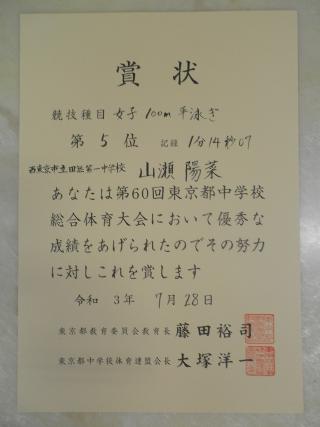 賞状
競技種目 女子 100m 平泳ぎ
第 5 位 記録 1分14秒07
西東京市立田無第一中学校 山瀬 陽菜
あなたは第60回東京都中学校
総合体育大会において優秀な
成績をあげられたのでその努力
に対しこれを賞します
令和 3年 7月 28日
東京都教育委員会教育長 藤田裕司
東京都中学校体育連盟会長 大塚洋一